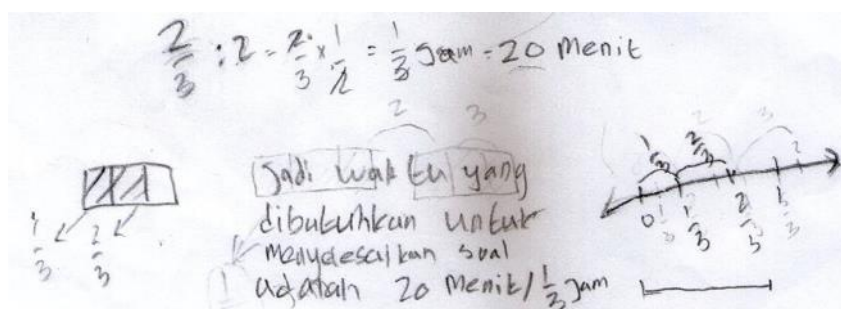 2/3 : 2 = 2/3 x 1/2 = 1/3 jam = 20 menit
Jadi waktu yang
dibutuhkan untuk
menyelesaikan soal
adalah 20 menit/ 1/3 jam
1/3 2/3
1/3 2/3
0 1/3 2/3